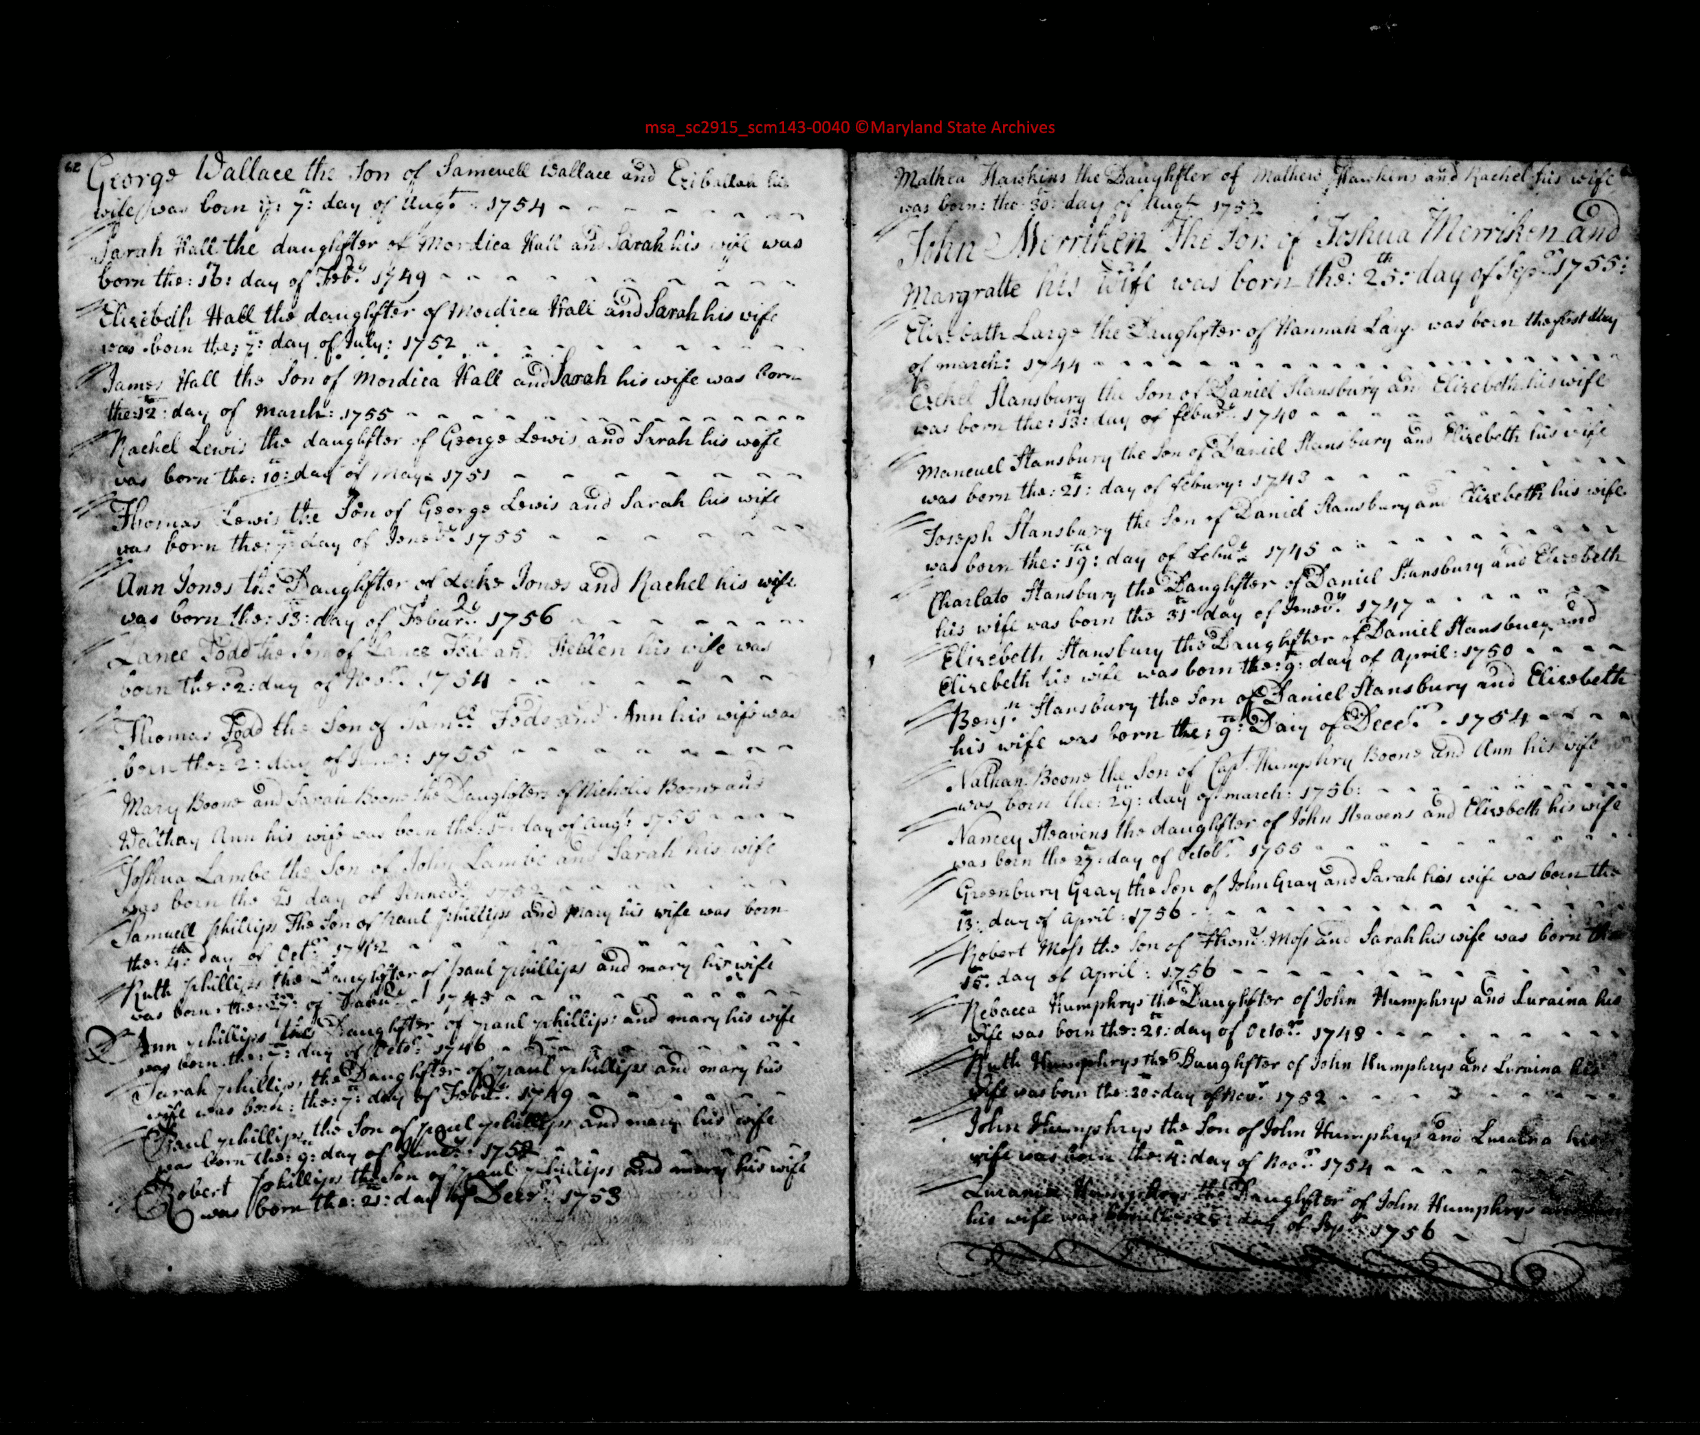 msa_sc2915_scm143-0040 ©Maryland State Archives
62
George Wallace the Son of Samewell Wallace and his
wife was born ye 7: day of Augt 1754
Sarah Hall the daughfter of Mordica Hall and Sarah his wife was
born the: 16: day of Feby 1749
Elizebeth Hall the daughfter of Mordica Hall and Sarah his wife
was born the: 7: day of July: 1752
James Hall the Son of Mordica Hall and Sarah his wife was born
the: 12: day of March: 1755
Rachel Lewis the daughfter of George Lewis and Sarah his wife
was born the: 10: day of May 1751
Thomas Lewis the Son of George Lewis and Sarah his wife
was born the: 7: day of 1755
Ann Jones the Daughfter of Luke Jones and Rachel his wife
was born the: 13: day of Febury 1756
Lance Todd the Son of Lance Todd and Hellen his wife was
born the: 2: day of Novr 1754
Thomas Todd the Son of Samll Todd and Ann his wife was
born the: 2: day of June: 1755
Mary Boone and Sarah Boone the Daughfters of Nicholis Boone and
Welthay Ann his wife was born the: day of Augt 1755
Joshua Lambe the Son of John Lambe and Sarah his wife
was born the 21 day of
Samuell phillips The Son of paul phillips and Mary his wife was born
the: 4th: day of Octr 1742
Ruth phillips the Daughfter of paul phillips and mary his wife
was born: the: 27: of 1745
Ann phillips the Daughfter of paul phillips and mary his wife
was born the: day of Octor 1746
Sarah phillips the Daughfter of paul phillips and mary his
wife was born: the: 7: day of Feb 1749
Paul phillips the Son of paul phillips and mary his wife
was born the: 9: day of
Robert phillips the Son of paul phillips and mary his wife
was born the: 21: day of Decr 1753
Mathea Hawkins the Daughfter of Mathew Hawkins and Rachel his wife
was born: the 30: day of Augt 1752
John Merriken The Son of Joshua Merriken and
Margratte his wife was born the: 25th: day of Sepr 1755:
Elizebath Large the Daughfter of Hannah Large was born the first day
of march: 1744
Ezekel Stansbury the Son of Daniel Stansbury and Elizebeth his wife
was born the: 13: day of febury 1740
Maneuel Stansbury the Son of Daniel Stansbury and Elizebeth his wife
was born the: 21: day of febury: 1743
Joseph Stansbury the Son of Daniel Stansbury and Elizebeth his wife
was born the: 19th: day of 1745
Charlato Stansbury the Daughfter of Daniel Stansbury and Elizebeth
his wife was born the 31st day of 1747
Elizebeth Stansbury the Daughfter of Daniel Stansbury and
Elizebeth his wife was born the: 9: day of April: 1750
Benjn Stansbury the Son of Daniel Stansbury and Elizebeth
his wife was born the: 9th: Day of Decr 1754
Nathan Boone the Son of Capt Humphry Boone and Ann his wife
was born the: 29: day of march: 1756:
Nancey Heavens the daughfter of John Heavens and Elizebeth his wife
was born the 27: day of Octobr 1755
Greenbury Gray the Son of John Gray and Sarah his wife was born the
13: day of April: 1756
Robert Moss the Son of Thoms Moss and Sarah his wife was born the
15: day of April: 1756
Rebacca Humphrys the Daughfter of John Humphrys and Luraina his
wife was born the: 21: day of Octor 1749
Ruth Humphrys the Daughfter of John Humphrys and Luraina his
wife was born the: 30: day of Novr 1752
John Humphrys the Son of John Humphrys and Luraina his
wife was born the: 4: day of Novr 1754
Luraniea Humphrys the Daughfter of John Humphrys and
his wife was day of Sepr 1756